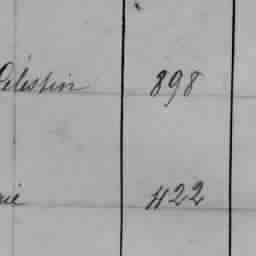 Célestin 898
rie 422